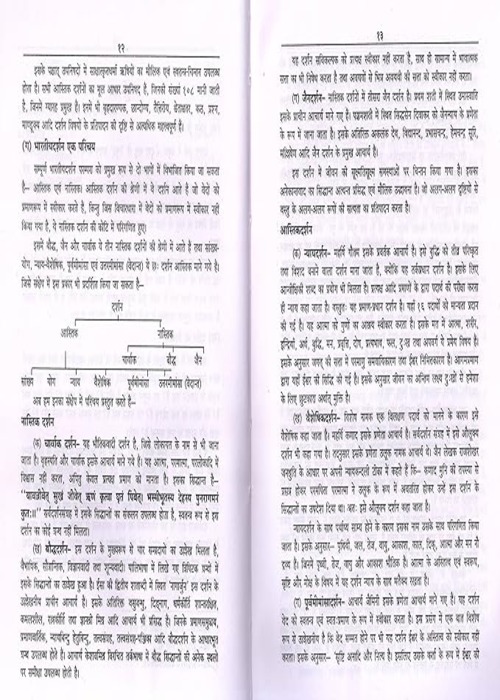 १२
इसके पश्चात् उपनिषदों में साक्षात्कृतधर्मा ऋषियों का मौलिक एवं स्वतन्त्र-चिन्तन उपलब्ध
होता है। सभी आस्तिक दर्शनों का मूल आधार उपनिषद् है, जिनकी संख्या १०८ मानी जाती
है, जिनमें ग्यारह प्रमुख है। इनमें भी वृहदारण्यक, छान्दोग्य, तैत्तिरीय, श्वेताश्वतर, कठ, प्रश्न,
माण्डूक्य आदि दर्शन विषयों के प्रतिपादन की दृष्टि से अत्यधिक महत्वपूर्ण है।
(ग) भारतीयदर्शन एक परिचय
सम्पूर्ण भारतीयदर्शन परम्परा को प्रमुख रूप से दो भागों में विभाजित किया जा सकता
है– आस्तिक एवं नास्तिक। आस्तिक दर्शन की श्रेणी में वे दर्शन आते है जो वेदों को
प्रमाणरूप में स्वीकार करते है, किन्तु जिस विचारधारा में वेदों को प्रमाणरूप में स्वीकार नहीं
किया गया है, ये नास्तिक दर्शन की कोटि में परिगणित हुए।
इसमें बौद्ध, जैन और चार्वाक ये तीन नास्तिक दर्शनों की श्रेणी में आते है तथा सांख्य-
योग, न्याय-वैशेषिक, पूर्वमीमांसा एवं उत्तरमीमांसा (वेदान्त) ये छः दर्शन आस्तिक माने गये है।
जिसे संक्षेप में इस प्रकार भी प्रदर्शित किया जा सकता है–
दर्शन
आस्तिक नास्तिक
चार्वाक बौद्ध जैन
सांख्य योग न्याय वैशेषिक पूर्वमीमांसा उत्तरमीमांसा (वेदान्त)
अब हम इनका संक्षेप में परिचय प्रस्तुत करते है–
नास्तिक दर्शन
(क) चार्वाक दर्शन– यह भौतिकवादी दर्शन है, जिसे लोकायत के नाम से भी जाना
जाता है। वृहस्पति और चार्वाक इसके आचार्य माने गये है। यह आत्मा, परमात्मा, परलोकादि में
विश्वास नहीं करता, अपितु केवल प्रत्यक्ष प्रमाण को मानता है। इसका सिद्धान्त है–
“यावज्जीवेत् सुखं जीवेत् ऋणं कृत्वा घृतं पिबेत्। भस्मीभूतस्य देहस्य पुनरागमनं
कुतः॥” सर्वदर्शनसंग्रह में इसके सिद्धान्तों का संकलन उपलब्ध होता है, स्वतन्त्र रूप से इस
दर्शन का कोई ग्रन्थ नहीं मिलता।
(ख) बौद्धदर्शन– इस दर्शन के मुख्यरूप से चार सम्प्रदायों का उल्लेख मिलता है,
वैभाषिक, सौत्रान्तिक, विज्ञानवादी तथा शून्यवादी। पालिभाषा में लिखे गए त्रिपिटक ग्रन्थों में
इसके सिद्धान्तों का उल्लेख हुआ है। ईसा की द्वितीय शताब्दी में स्थित ‘नागार्जुन’ इस दर्शन के
उल्लेखनीय प्राचीन आचार्य है। इसके अतिरिक्त वसुबन्धु, दिङ्नाग, धर्मकीर्ति शान्तरक्षित,
कमलशील, रत्नकीर्ति तथा ज्ञानश्री मित्र आदि आचार्य भी प्रसिद्ध है। जिनके प्रमाणसमुच्चय,
प्रमाणवार्तिक, न्यायबिन्दु हेतुबिन्दु, तत्त्वसंग्रह, तत्त्वसंग्रह-पञ्जिका आदि बौद्धदर्शन के आधारभूत
ग्रन्थ उपलब्ध होते है। आचार्य केशवमिश्र विरचित तर्कभाषा में बौद्ध सिद्धान्तों की अनेक स्थलों
पर समीक्षा उपलब्ध होती है।
१३
यह दर्शन सविकल्पक को प्रत्यक्ष स्वीकार नहीं करता है, साथ ही सामान्य में भावात्मक
सत्ता का भी निषेध करता है तथा अवयवों से भिन्न अवयवी की सत्ता को स्वीकार नहीं करता।
(ग) जैनदर्शन– नास्तिक दर्शनों में तीसरा जैन दर्शन है। प्रथम शती में स्थित उमास्वाति
इसके प्राचीन आचार्य माने गए है। पञ्चमशती में स्थित सिद्धसेन दिवाकर को जैनन्याय के प्रणेता
के रूप में जाना जाता है। इसके अतिरिक्त अकलंक देव, विद्यानन्द, प्रभाचन्द्र, हेमचन्द्र सूरि,
मल्लिषेण आदि जैन दर्शन के प्रमुख आचार्य है।
इस दर्शन में जीवन की सूक्ष्मातिसूक्ष्म समस्याओं पर चिन्तन किया गया है। इसका
अनेकान्तवाद का सिद्धान्त अत्यन्त प्रसिद्ध एवं मौलिक उद्भावना है। जो अलग-अलग दृष्टियों से
वस्तु के अलग-अलग रूपों की सत्यता का प्रतिपादन करता है।
आस्तिकदर्शन
(क) न्यायदर्शन– महर्षि गौतम इसके प्रवर्तक आचार्य है। इसे बुद्धि को तीव्र परिष्कृत
तथा विशद बनाने वाला दर्शन माना जाता है, क्योंकि यह तर्कप्रधान दर्शन है। इसके लिए
आन्वीक्षिकी शब्द का प्रयोग भी मिलता है। प्रत्यक्ष आदि प्रमाणों के द्वारा पदार्थ की परीक्षा करना
ही न्याय कहा जाता है। वस्तुतः यह प्रमाण-प्रधान दर्शन है। यहाँ १६ पदार्थों को मान्यता प्रदान
की गई है। यह आत्मा को गुणों का आश्रय स्वीकार करता है। इसके मत में आत्मा, शरीर,
इन्द्रियाँ, अर्थ, बुद्धि, मन, प्रवृत्ति, दोष, प्रेत्यभाव, फल, दुःख तथा अपवर्ग ये प्रमेय विषय है।
इसके अनुसार जगत् की सत्ता में परमाणु समवायिकारण तथा ईश्वर निमित्तकारण है। आगमप्रमाण
द्वारा यहाँ ईश्वर की सिद्धि की गई है। इसके अनुसार जीवन का अन्तिम लक्ष्य दुःखों से हमेशा
के लिए छुटकारा अर्थात् मुक्ति है।
(ख) वैशेषिकदर्शन– विशेष नामक एक विलक्षण पदार्थ को मानने के कारण इसे
वैशेषिक कहा जाता है। महर्षि कणाद इसके प्रणेता आचार्य है। सर्वदर्शन संग्रह में इसे औलूक्य
दर्शन भी कहा गया है। तदनुसार इसके प्रणेता उलूक नामक आचार्य थे। जैन लेखक राजशेखर
जनश्रुति के आधार पर अपनी न्यायकन्दली टीका में कही है कि– कणाद मुनि की तपस्या से
प्रसन्न होकर परमपिता परमात्मा ने उलूक के रूप में अवतरित होकर उन्हें इस दर्शन के
सिद्धान्तों का उपदेश दिया था। अतः इसे औलूक्य दर्शन कहा जाता है।
न्यायदर्शन के साथ पर्याप्त साम्य होने के कारण इसका नाम उसके साथ परिगणित किया
जाता है। इसके अनुसार– पृथिवी, जल, तेज, वायु, आकाश, काल, दिक्, आत्मा और मन नौ
द्रव्य है। जिनमें पृथ्वी, तेज, वायु और आकाश भौतिक है। आत्मा के अस्तित्व एवं स्वरूप,
सृष्टि और मोक्ष के विषय में यह दर्शन न्याय के साथ मतैक्य रखता है।
(ग) पूर्वमीमांसादर्शन– आचार्य जैमिनी इसके प्रणेता आचार्य माने गए है। यह दर्शन
वेद को स्वतन्त्र एवं स्वतःप्रमाण के रूप में स्वीकार करता है। इस प्रसंग में एक बात विशेष
रूप से उल्लेखनीय है कि वेद सम्मत होने पर भी यह दर्शन ईश्वर के अस्तित्व को स्वीकार नहीं
करता। इसके अनुसार– ‘सृष्टि अनादि और नित्य है। इसलिए उसके कर्ता के रूप में ईश्वर की